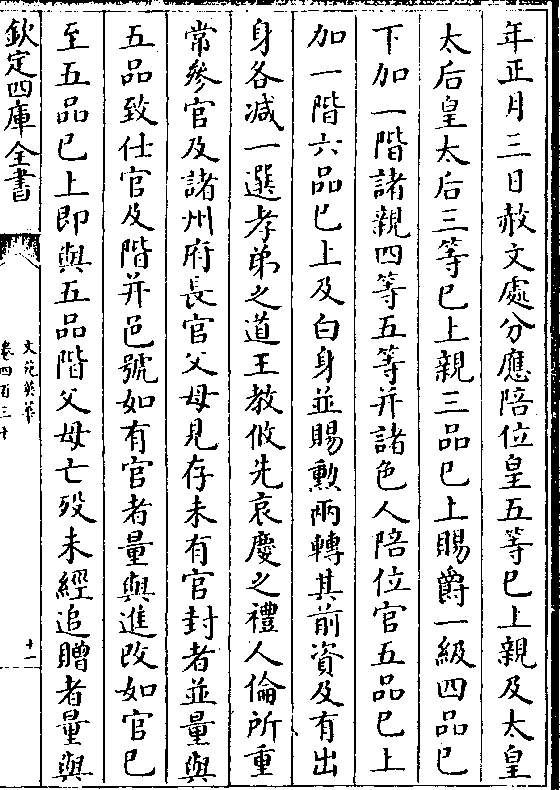 年正月三日赦文處分應陪位皇五等已上親及太皇
太后皇太后三等已上親三品已上賜爵一級四品已
下加一階諸親四等五等并諸色人陪位官五品已上
加一階六品已上及白身並賜勲兩轉其前資及有出
身各减一選孝弟之道王教攸先哀慶之禮人倫所重
常參官及諸州府長官父母見存未有官封者並量與
五品致仕官及階并邑號如有官者量與進改如官已
至五品已上即與五品階父母亡殁未經追贈者量與
欽定四庫全書
文苑英華
卷四百三十
十一